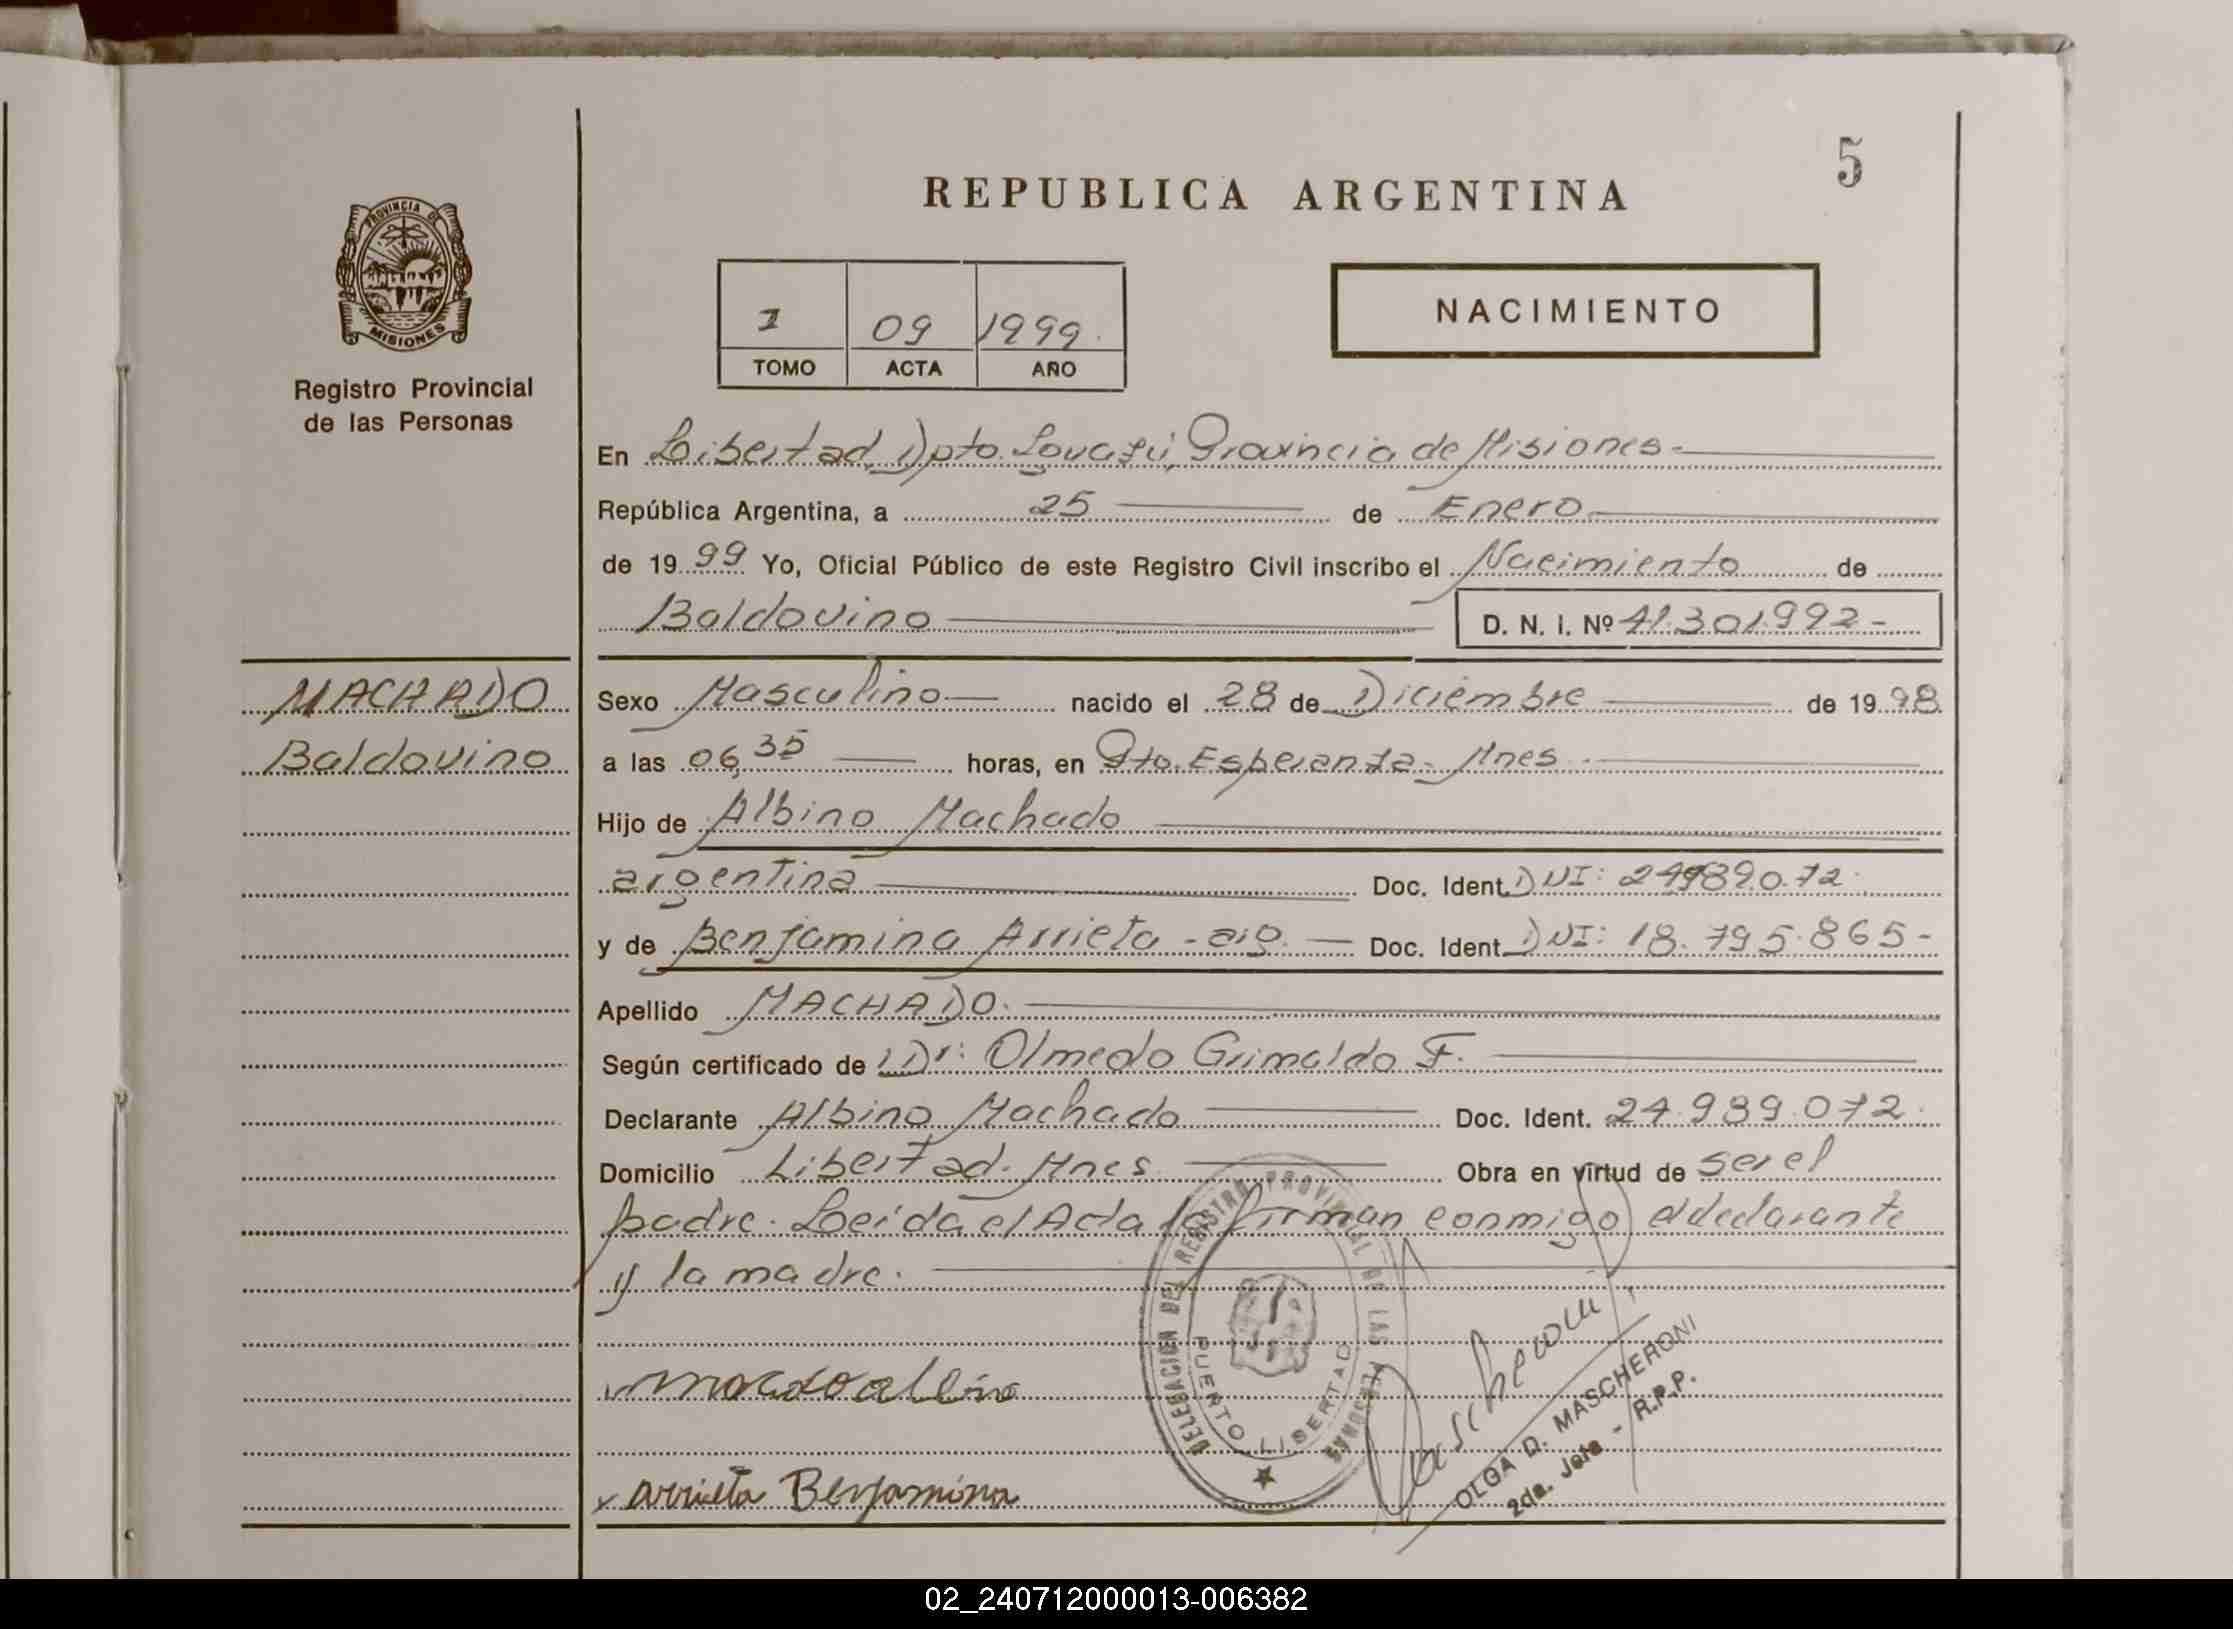 5
REPUBLICA ARGENTINA
PROVINCIA DE
MISIONES
Registro Provincial
de las Personas
1 09 1999.
TOMO ACTA AÑO
NACIMIENTO
En Libertad, Dpto. Iguazú, Provincia de Misiones-
República Argentina, a 25 de Enero
de 1999 Yo, Oficial Público de este Registro Civil inscribo el Nacimiento de
Baldovino D. N. I. Nº 41.301.992-
MACHADO
Baldovino
Sexo Masculino nacido el 28 de Diciembre de 1998
a las 06,35 horas, en Pto. Esperanza- Mnes
Hijo de Albino Machado
argentina Doc. Ident. DNI:
y de Benjamina Arrieta - arg. Doc. Ident. DNI: 18.795.865-
Apellido MACHADO.
Según certificado de Dr: Olmedo Grimaldo F.
Declarante Albino Machado Doc. Ident. 24.989.072.
Domicilio Libertad. Mnes Obra en virtud de ser el
padre. Leida el Acta la firman conmigo el declarante
y la madre.
DELEGACION DEL REGISTRO PROVINCIAL DE LAS PERSONAS
PUERTO LIBERTAD
Arrieta Benjamina
Mascheroni
OLGA D. MASCHERONI
2da. Jefe - R.P.P.
02_240712000013-006382